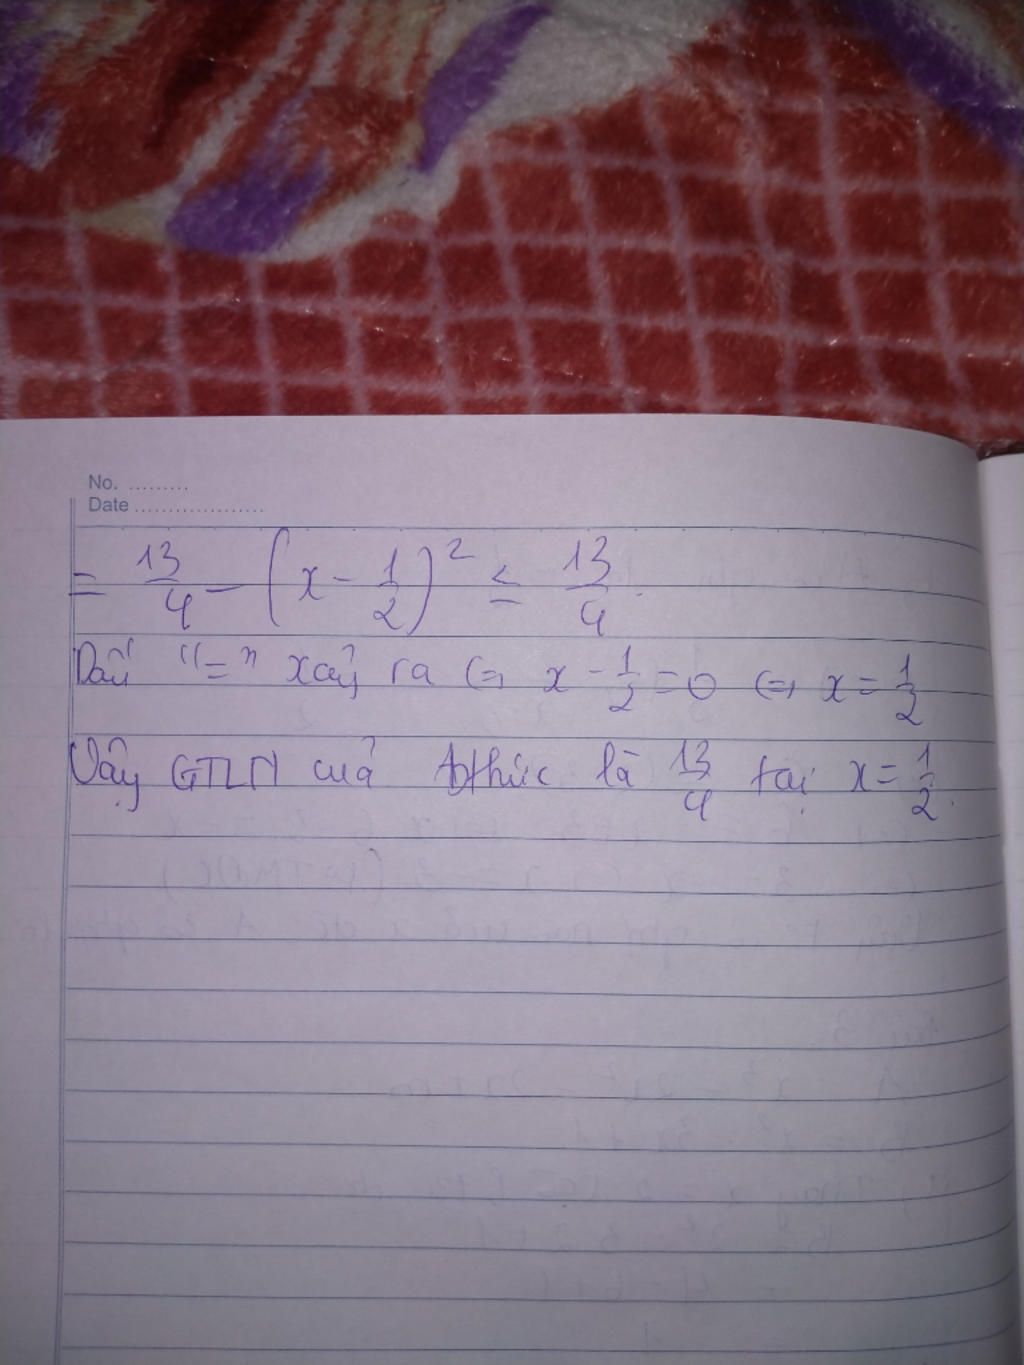 No. .........
Date ...................
= 13/4 - (x - 1/2)² ≤ 13/4.
Dấu "=" xảy ra <=> x - 1/2 = 0 <=> x = 1/2
Vậy GTLN cuả thức là 13/4 tại x = 1/2.